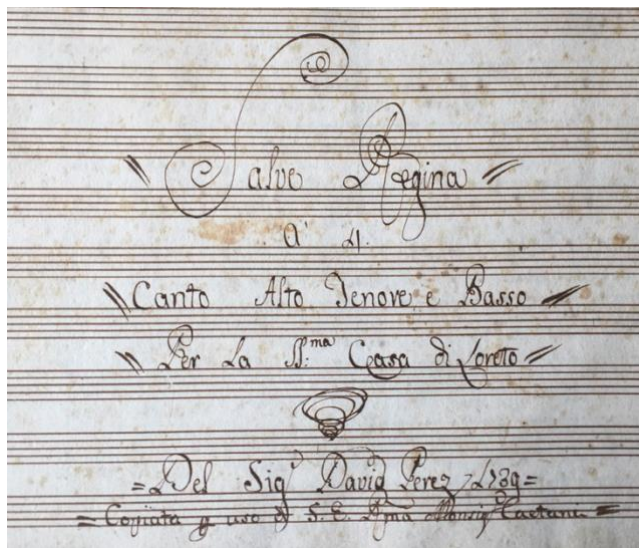 Salve Regina
a 4.
Canto Alto Tenore e Basso
Per La SS:ma Casa di Loreto
Del Sigr David Perez
Copiata p uso di S. E. Rma Monsigr Caetani